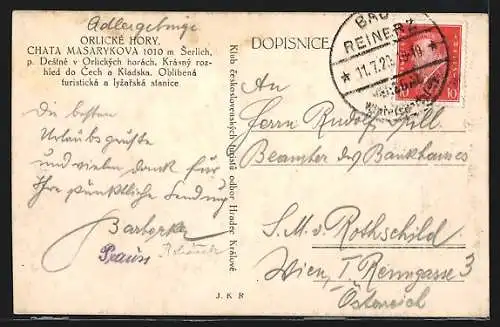 Adlergebirge
ORLICKÉ HORY.
CHATA MASARYKOVA 1010 m Šerlich,
p. Deštné v Orlických horách. Krásný roz-
hled do Čech a Kladska. Oblíbená
turistická a lyžařská stanice
Die besten
Urlaubsgrüsse
und vielen Dank für
Ihre pünktliche Sendung
Klub československých turistů odbor Hradec Králové
J. K. R
DOPISNICE
BAD REINERZ
11.7.29
10 10
An
Herrn Rudolf
Beamter des Bankhauses
S. M. v. Rothschild
Wien, I. Renngasse 3
Österreich